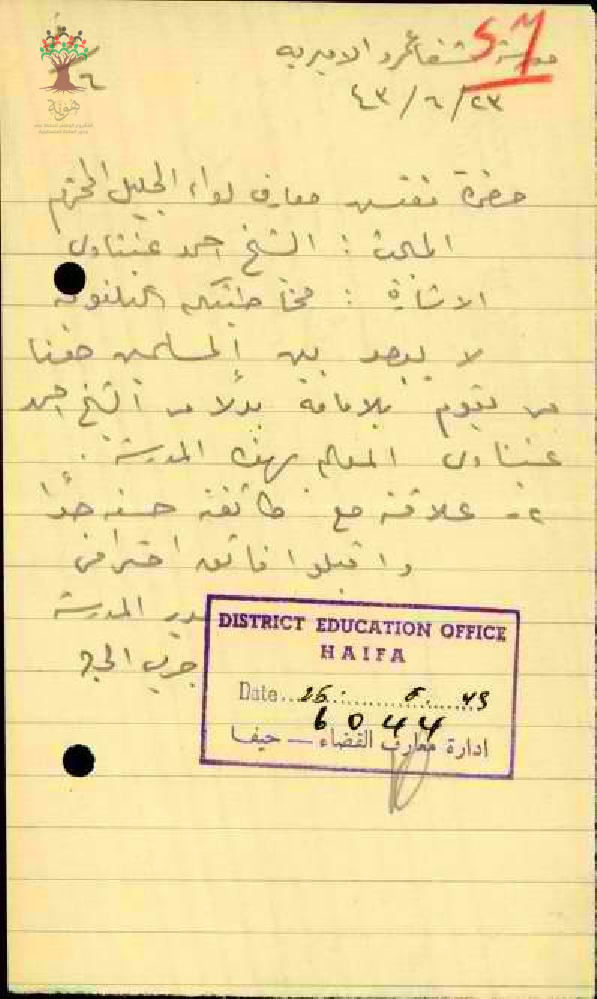 مدرسة شفاعمرو الاميريه
SM
٤٣/٦/٢٣
هوية
حضرة مفتش معارف لواء الجليل المحترم
المبحث : الشيخ احمد عنبتاوي
الاشارة : مخابرتكم التلفونية
لا يوجد بين المسلمين هنا
من يقوم بالامامة بدلا من الشيخ احمد
المعلم بهذه المدرسة .
٢- علاقته مع طائفته حسنه جدا
واقبلوا فائق احترامي
مدير المدرسة
DISTRICT EDUCATION OFFICE
HAIFA
Date 26. 6. 43
6044
ادارة معارف القضاء — حيفا